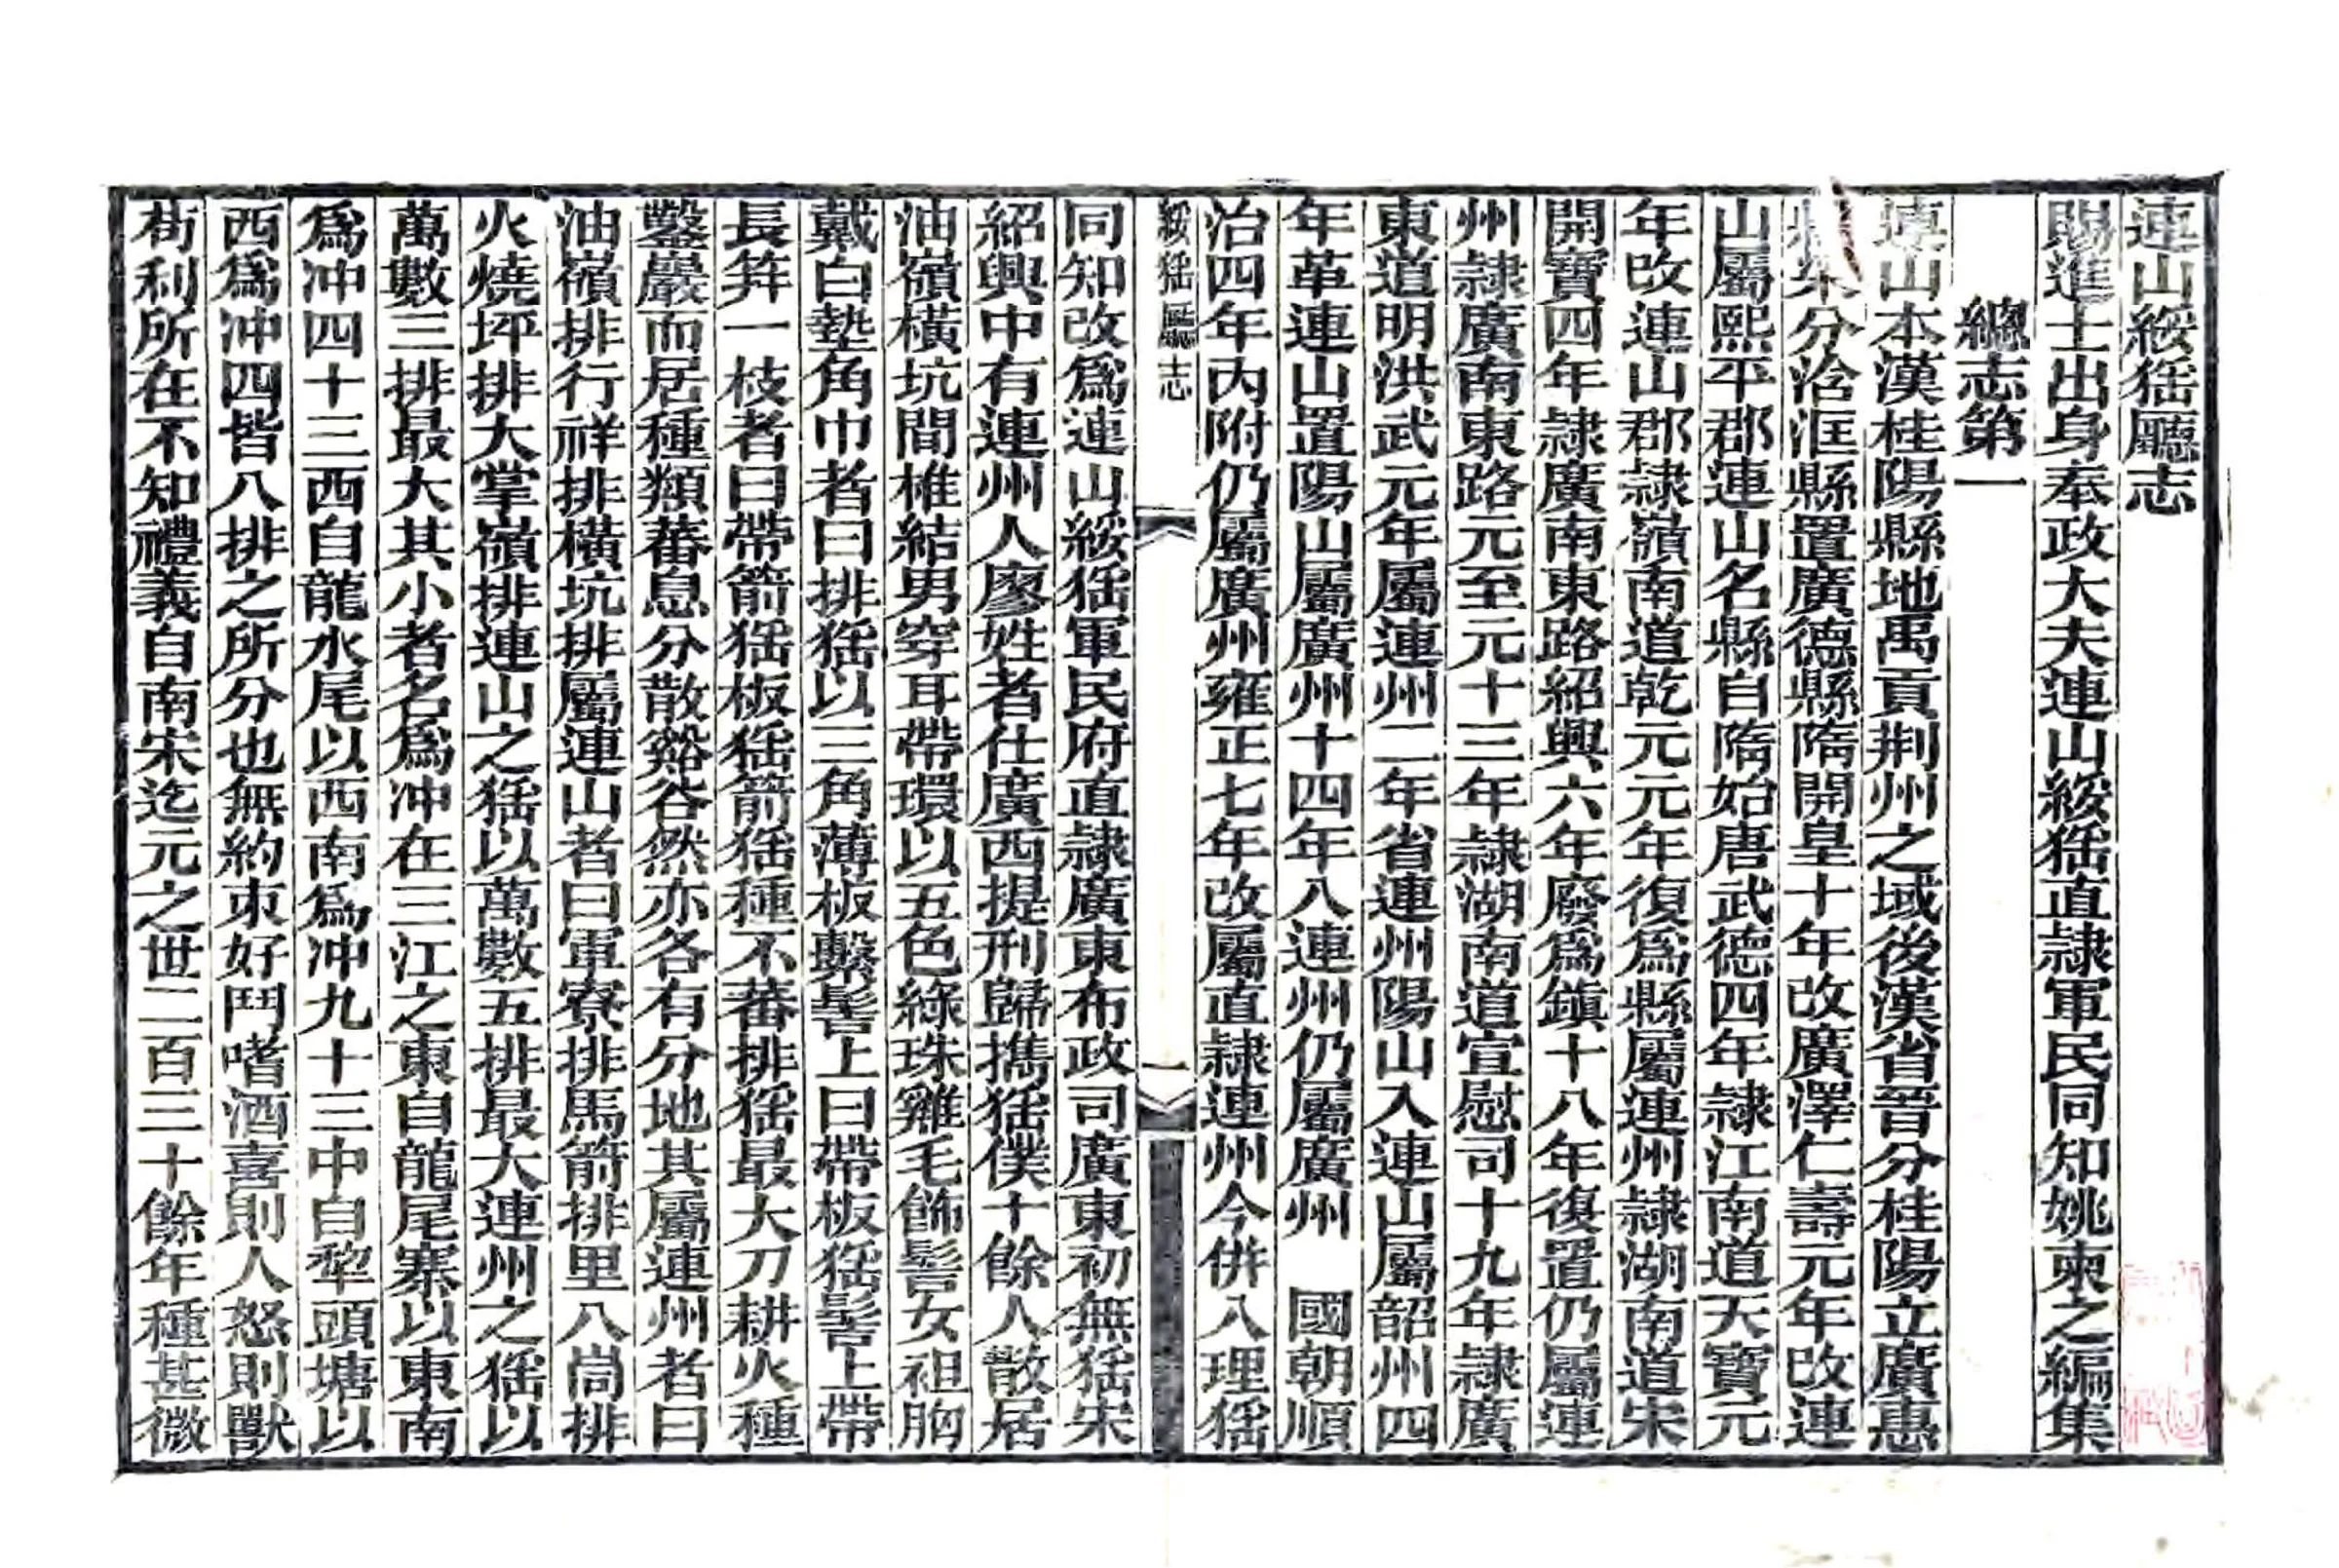 連山綏猺廳志
賜進士出身奉政大夫連山綏猺直隷軍民同知姚柬之編集
總志第一
連山本漢桂陽縣地禹貢荆州之域後漢省晉分桂陽立廣惠
縣梁分浛洭縣置廣德縣隋開皇十年改廣澤仁壽元年改連
山屬熙平郡連山名縣自隋始唐武德四年隷江南道天寶元
年改連山郡隷嶺南道乾元元年復爲縣屬連州隷湖南道宋
開寶四年隷廣南東路紹興六年廢爲鎭十八年復置仍屬連
州隷廣南東路元至元十三年隷湖南道宣慰司十九年隷廣
東道明洪武元年屬連州二年省連州陽山入連山屬韶州四
年革連山置陽山屬廣州十四年入連州仍屬廣州 國朝順
治四年內附仍屬廣州雍正七年改屬直隷連州今併入理猺
綏猺廳志 一
同知改爲連山綏猺軍民府直隷廣東布政司廣東初無猺宋
紹興中有連州人廖姓者仕廣西提刑歸攜猺僕十餘人散居
油嶺橫坑間椎結男穿耳帶環以五色綠珠雞毛飾髻女袒胸
戴白墊角巾者曰排猺以三角薄板繫髻上曰帶板猺髻上帶
長筓一枝者曰帶箭猺板猺箭猺種不蕃排猺最大刀耕火種
鑿巖而居種類蕃息分散谿谷然亦各有分地其屬連州者曰
油嶺排行祥排橫坑排屬連山者曰軍寮排馬箭排里八崗排
火燒坪排大掌嶺排連山之猺以萬數五排最大連州之猺以
萬數三排最大其小者名爲冲在三江之東自龍尾寨以東南
爲冲四十三西自龍水尾以西南爲冲九十三中自犂頭塘以
西爲冲四皆八排之所分也無約束好鬥嗜酒喜則人怒則獸
苟利所在不知禮義自南宋迄元之世二百三十餘年種甚微